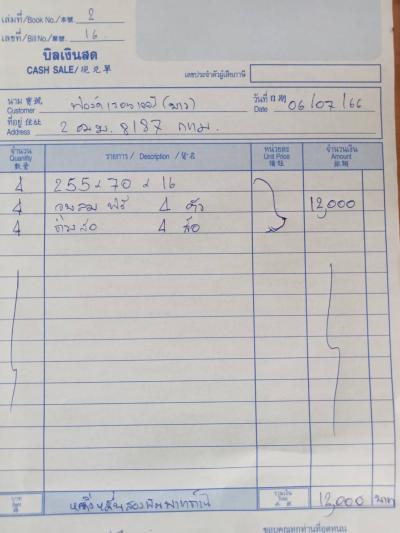 เล่มที่/Book No./本號 2
เลขที่/Bill No./單號 16
บิลเงินสด
CASH SALE/現兌單
เลขประจำตัวผู้เสียภาษี
นาม 寶號 Customer ฟอร์ดเรนเจอร์ (ขาว) วันที่ 日期 Date 06/07/66
ที่อยู่ 住址 Address 2 ฒฆ 8187 กทม.
จำนวน Quantity 數量 รายการ / Description / 貨名 หน่วยละ Unit Price 價格 จำนวนเงิน Amount 銀額
4 255 x 70 x 16
4 จุบลม ฟรี 4 ตัว 12,000
4 ถ่วงล้อ 4 ล้อ
บาท Baht หนึ่งหมื่นสองพันบาทถ้วน รวมเงิน Total 12,000 บาท
ขอบคุณทุกท่านที่อุดหนุน